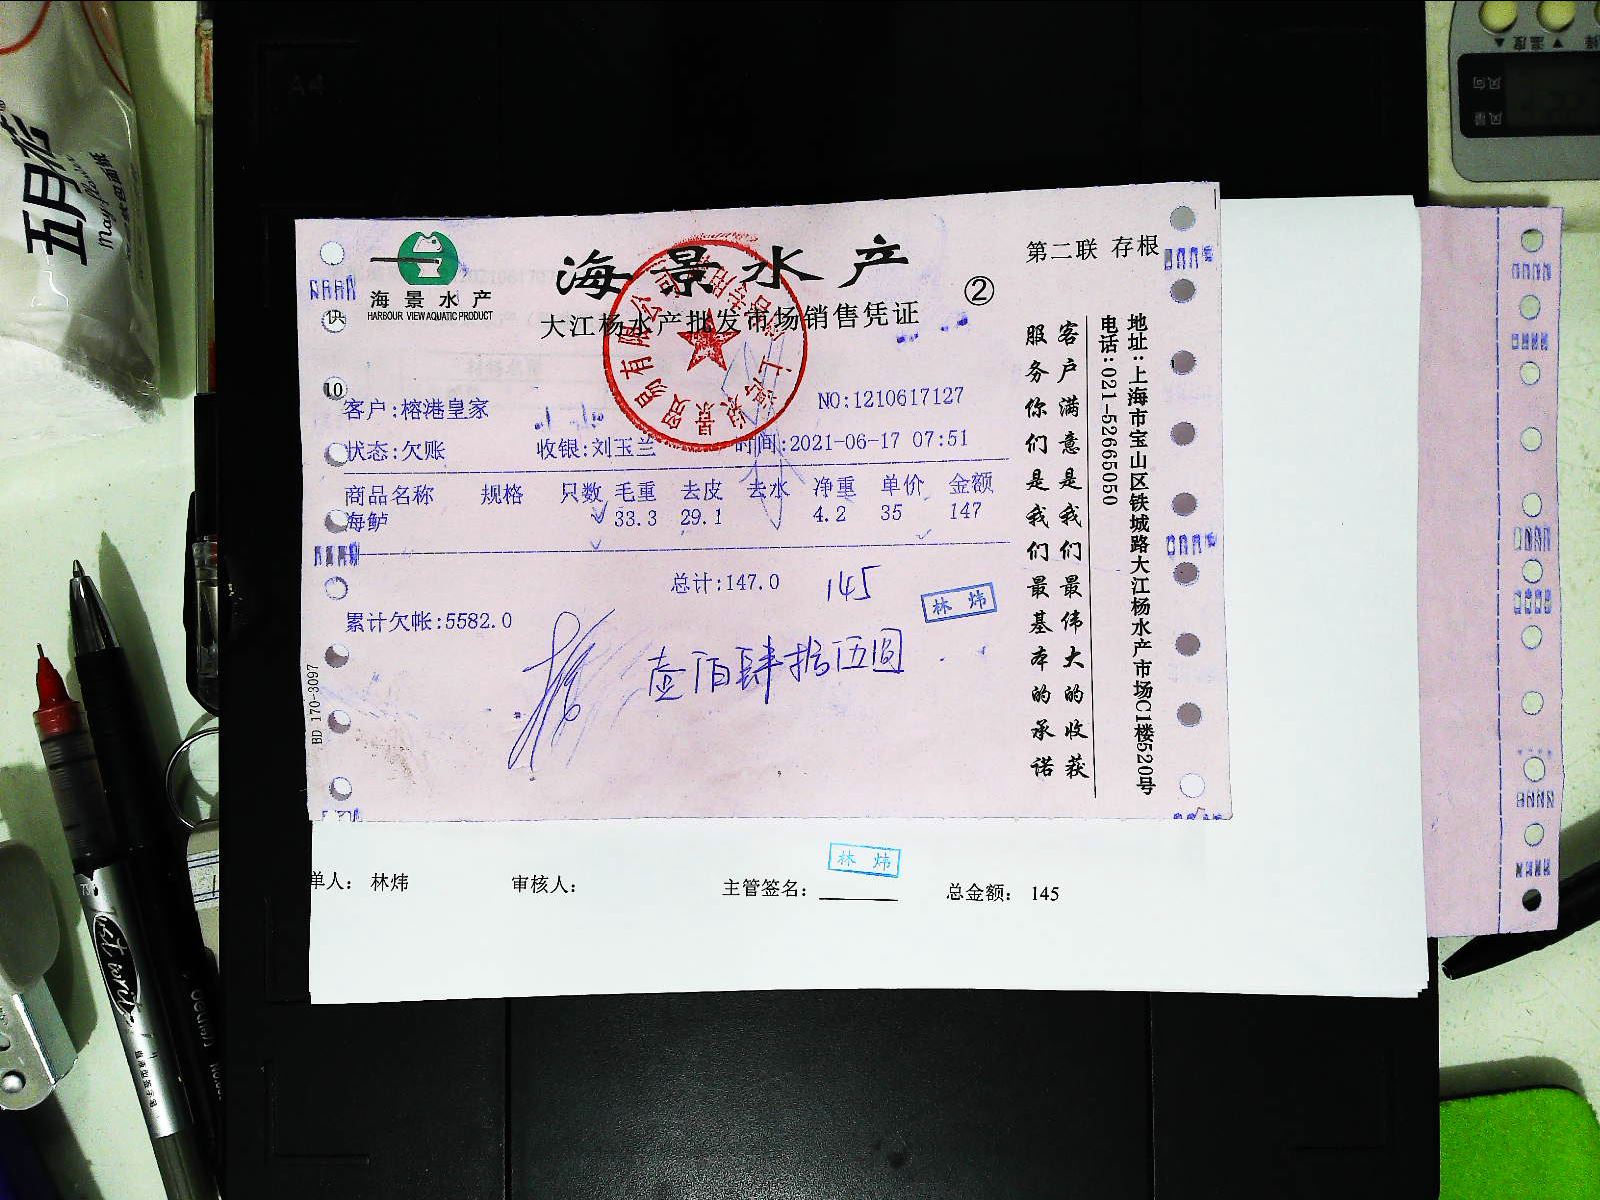 五月花
May Flower
海景水产
HARBOUR VIEW AQUATIC PRODUCT
海景水产
大江杨水产批发市场销售凭证
②
第二联 存根
供
10
客户:榕港皇家
NO:1210617127
状态:欠账 收银:刘玉兰 时间:2021-06-17 07:51
商品名称 规格 只数 毛重 去皮 去水 净重 单价 金额
海鲈 33.3 29.1 4.2 35 147
总计:147.0 145
林炜
累计欠帐:5582.0
壹佰肆拾伍圆
BD 170-3097
客户满意是我们最伟大的收获
服务你们是我们最基本的承诺
地址:上海市宝山区铁城路大江杨水产市场C1楼520号
电话:021-52665050
贸易有限公司
林炜
单人: 林炜 审核人: 主管签名: 总金额: 145
温度
风向
风量